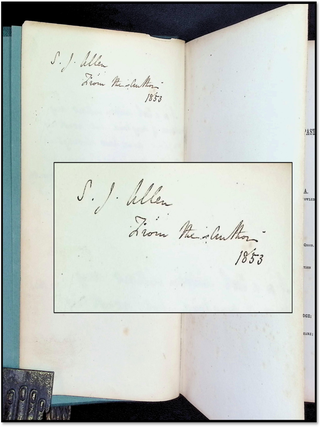 S. J. Allen
From the Author
1853
S. J. Allen
From the Author
1853